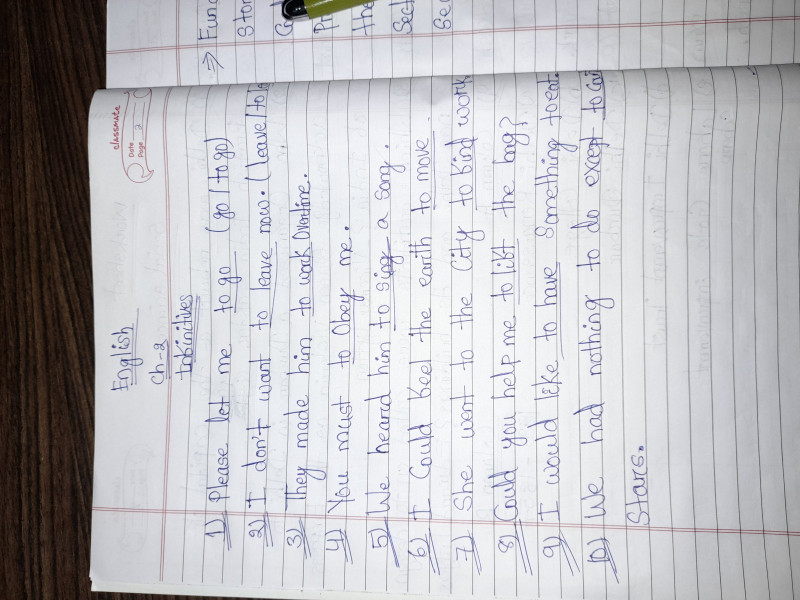 classmate
Date
Page 2
English
Ch-2
Infinitives
1) Please let me to go (go / to go)
2) I don't want to leave now. (leave / to
3) They made him to work Overtime.
4) You must to Obey me.
5) We heard him to sing a song.
6) I Could feel the earth to move.
7) She went to the City to find work
8) Could you help me to lift the
9) I would like to have Something to eat.
10) We had nothing to do except to
Stars.
⇒ Func
Star
Pr
the
Sect
Sec